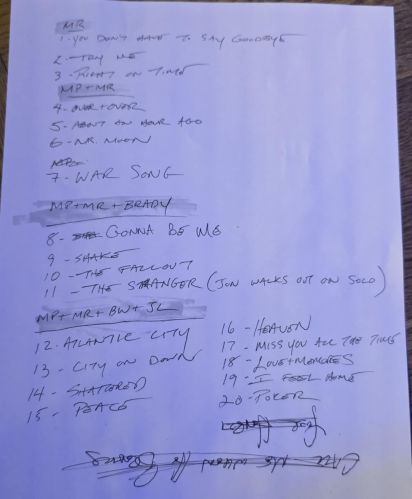 MR
1- YOU DON'T HAVE TO SAY GOODBYE
2- TRY ME
3- RIGHT ON TIME
MP+MR
4- OVER+OVER
5- ABOUT AN HOUR AGO
6- MR. MOON
7- WAR SONG
MP+MR+BRADY
8- GONNA BE ME
9- SHAKE
10- THE FALLOUT
11- THE STRANGER (JON WALKS OUT ON SOLO)
MP+MR+BW+JL
12- ATLANTIC CITY
13- CITY ON DOWN
14- SHATTERED
15- PEACE
16- HEAVEN
17- MISS YOU ALL THE TIME
18- LOVE+MEMORIES
19- I FEEL HOME
20- POKER